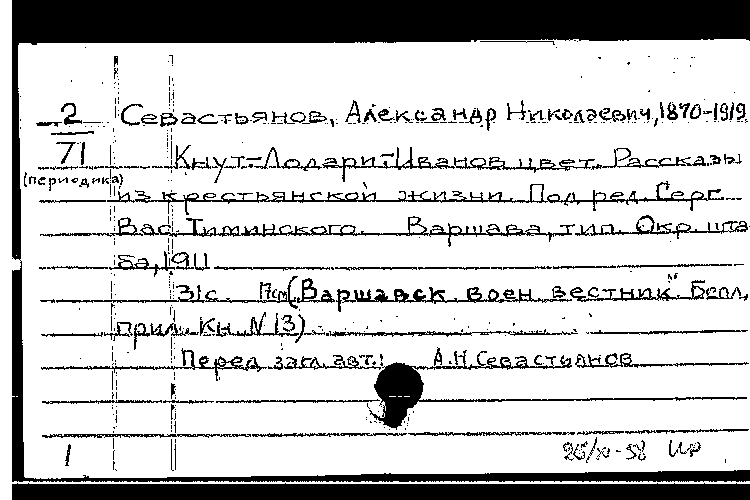 2
71
(периодика)
Севастьянов, Александр Николаевич, 1870-1919
Кнут-Лодари-Иванов цвет. Рассказы
из крестьянской жизни. Под ред. Серг.
Вас. Тиминского. Варшава, тип. Окр. шта-
ба, 1911
31с. 17см (Варшавск. воен. вестник" Бепл.
прил. Кн. N 13)
Перед загл. авт.: А.Н. Севастьянов
1
26/XI-58